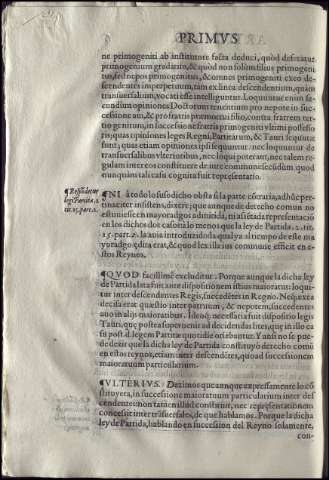 PRIMVS
ne primogeniti ab instituente facta deduci, quòd deferatur
primogenium gradatim, & quòd non solum filius primogeni
tus, sed nepos primogenitus, & omnes primogeniti ex eo de-
scendentes in perpetuum, tam ex linea descendentium, quàm
transuersalium, vocati esse intelliguntur. Loquuntur enim se-
cundùm opiniones Doctorum tenentium pro nepote in suc-
cessione auî, & pro fratris præmortui filio, contra fratrem ter
tio genitum, in successione fratris primogeniti vltimi possesso
ris; quas opiniones leges Regni, Partitarum, & Tauri sequutæ
sunt; quas etiam opiniones ipsi sequuntur. nec loquuntur de
transuersalibus vlterioribus, nec loqui poterant, nec talem re-
gulam inter eos constituere de iure communi secundùm quod
nunquàm tali casu cognita fuit repræsentatio.
¶ Respōdetur
legi Partitæ. 2.
tit. 15. part. 2.
¶NI à todo lo susodicho obsta si la parte cōtraria, adhuc per
tinaciter insistens, dixere; que aunque de derecho comun no
estuuiesse en mayoradgos admitida, ni assentada representació
en los dichos dos casos, alo menos que la ley de Partida. 2. tit.
15. part. 2. la auia introduzido. la qual ya al tiempo de este ma
yoradgo ędita erat, & quod lex illa ius commune efficit en e-
stos Reynos.
¶QVOD facillimè excluditur. Porque aunque la dicha ley
de Partida lata fuit ante dispositionem istius maioratus: loqui-
tur inter descendentes Regis, succedētes in Regno. Neq́ ex ea
decisa erat quæstio inter patruum, & nepotem, succedentes
auo in alijs maioratibus. Ideoq́; necessaria fuit dispositio legis
Tauri, quę postea superuenit ad decidendas lites, que in illo ca
su post ælegem Partitæ quotidie oriebantur. Y ansi no se pue-
de dezir que la dicha ley de Partida constituyo derecho comū
en estos reynos, etiam inter descendētes, quoad successionem
maioratuum particularium.
¶VLTERIVS. Dezimos que aunque expressamente lo cō
stituyera, in successione maioratuum particularium inter des
cendentes: non tamen illud constituit, nec repræsentationem
concessit inter trāsuersales, de que hablamos. Porque la dicha
ley de Partida, hablando en succession del Reyno solamente,
con-